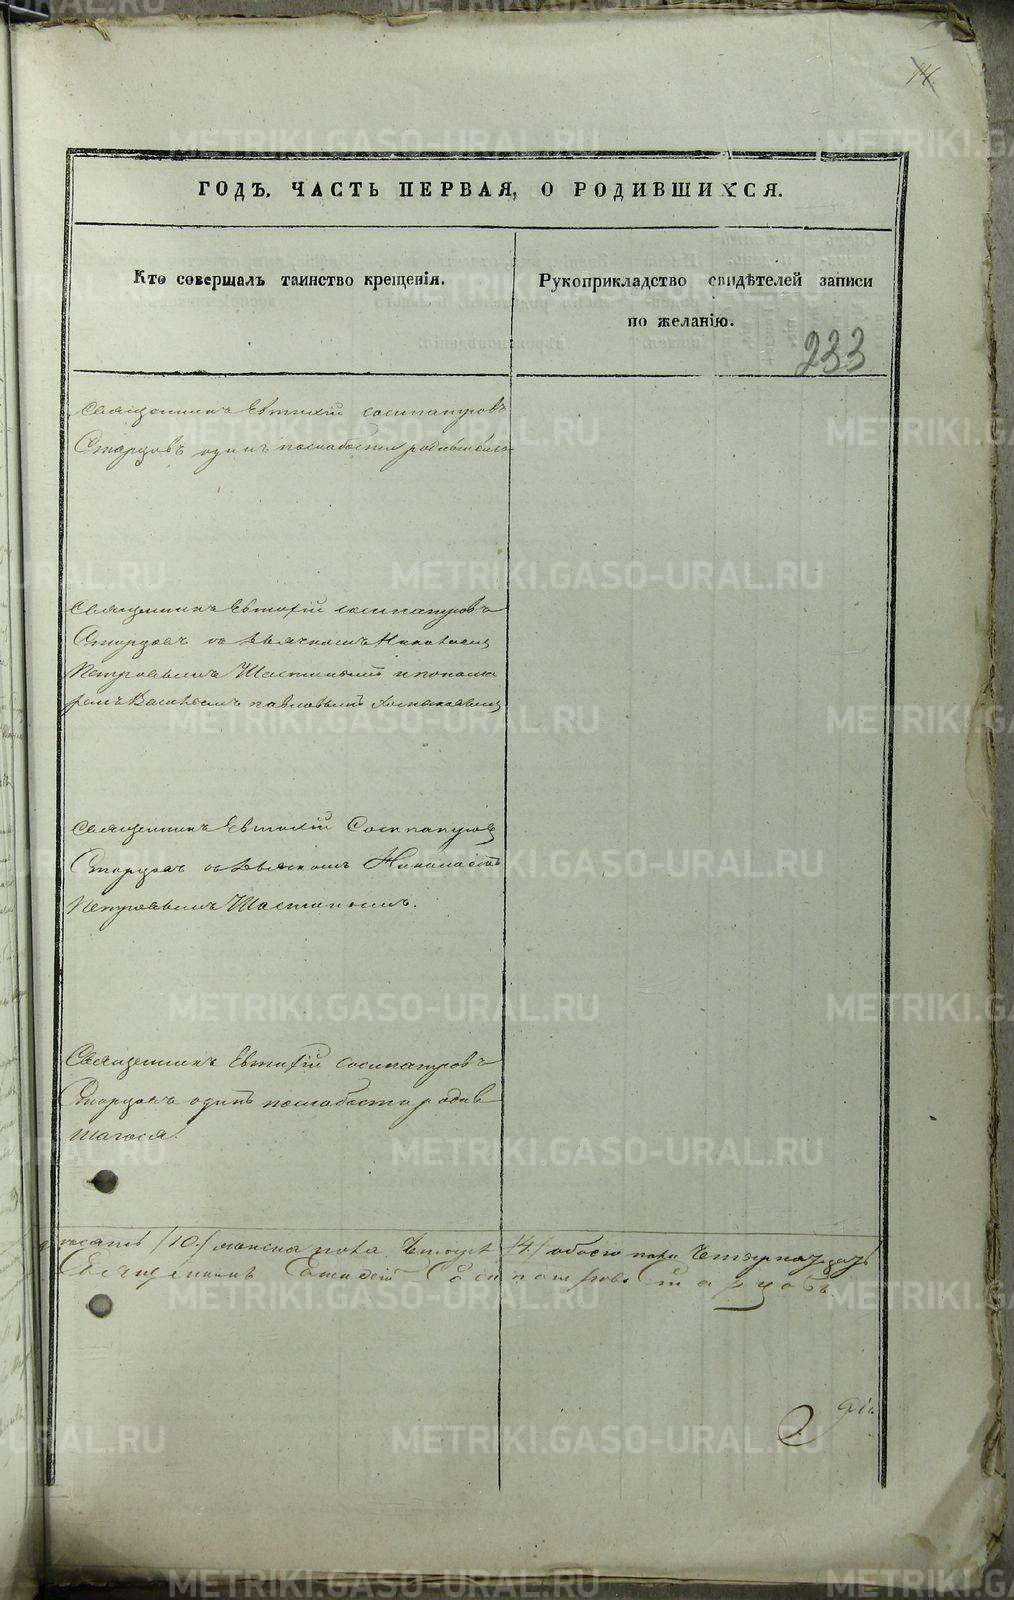 14.
ГОДЪ, ЧАСТЬ ПЕРВАЯ, О РОДИВШИХСЯ.
Кто совершалъ таинство крещенія.
Рукоприкладство свидѣтелей записи
по желанію.
233
Священникъ Евтихій Сосипатровъ
Старцовъ одинъ послабости
Священникъ Евтихій Сосипатровъ
Старцовъ съ Николаемъ
Петровымъ и понома
ремъ Василіемъ Павловымъ
Священникъ Евтихій Сосипатровъ
Старцовъ съ Николаемъ
Петровымъ
Священникъ Евтихій Сосипатровъ
Старцовъ одинъ послабости родив
шагося.
/10./ женска пола /4./ обоего пола
Священникъ Евтихій Сосипатровъ Старцовъ
METRIKI.GASO-URAL.RU